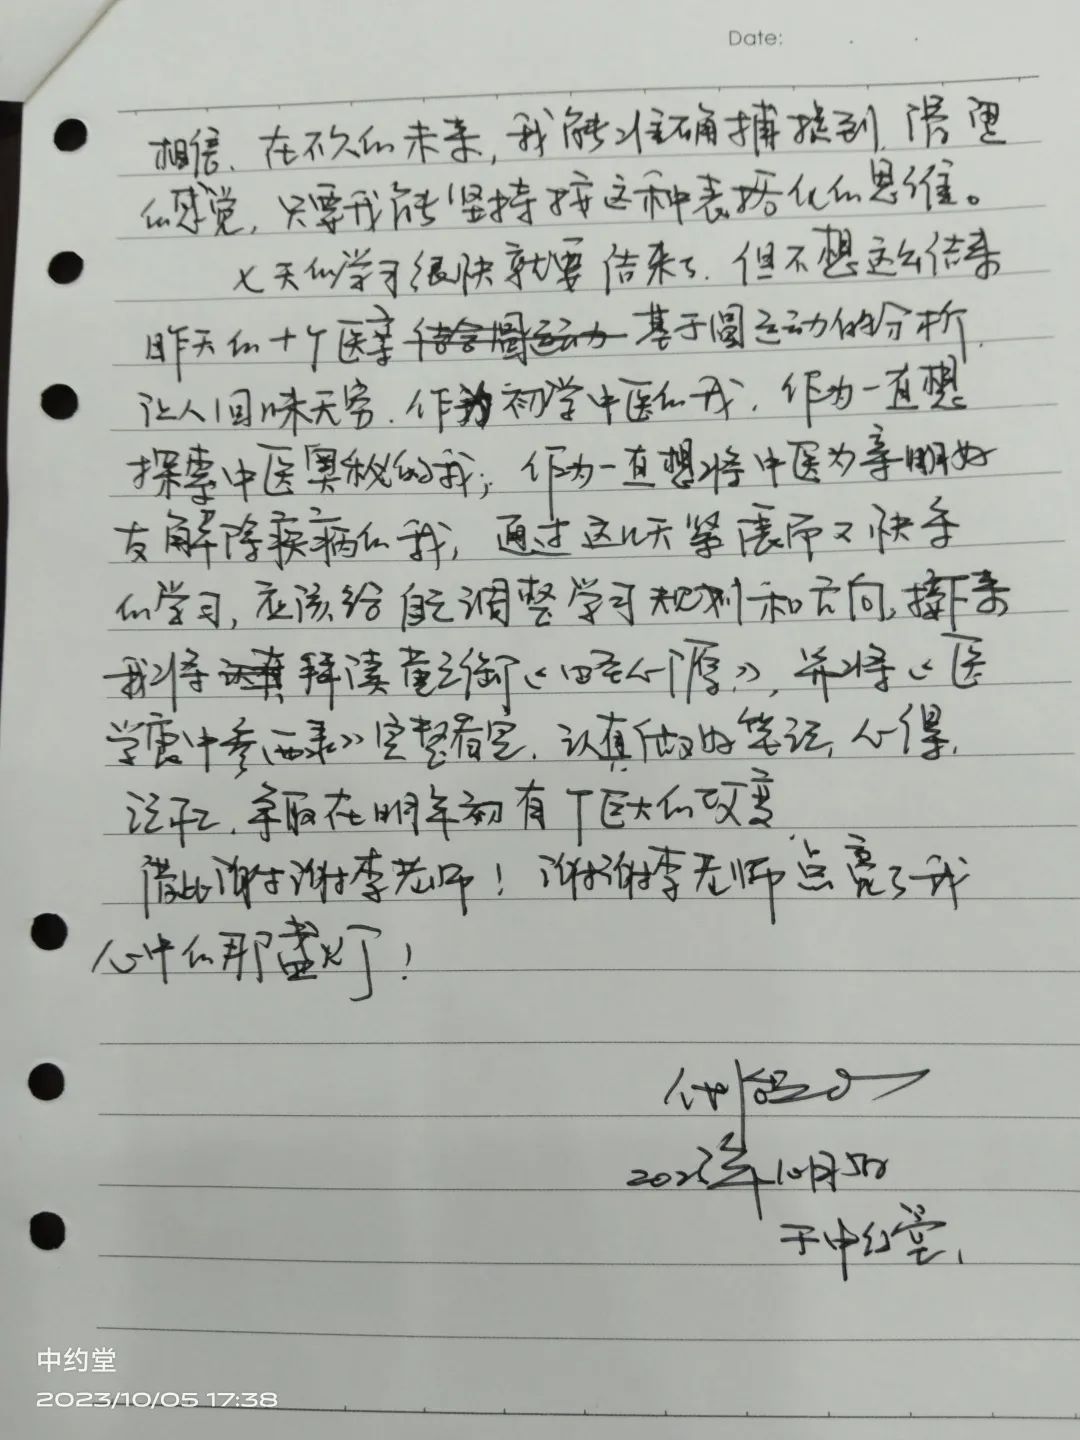 Date:
相信、在不久的未来，我能准确捕捉到
的感觉，只要我能坚持按这种表格化的思维。
七天的学习很快就要结束了、但不想这么结束
昨天的十个医案 基于圆运动的分析
让人回味无穷、作为初学中医的我，作为一直想
探索中医奥秘的我，作为一直想将中医为亲朋好
友解除疾病的我，通过这几天紧张而又快乐
的学习，应该给自己调整学习规划和方向，接下来
我将 拜读黄元御《四圣心源》，并将《医
学衷中参西录》完整看完，认真做好笔记，心得，
争取在明年初有个巨大的改变
借此谢谢李老师！谢谢李老师点亮了我
心中的那盏灯！
2023年10月5日
于中约堂
中约堂
2023/10/05 17:38